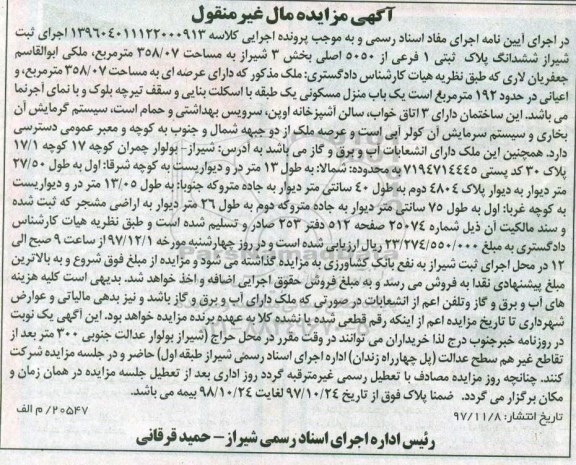 آگهی مزایده مال غیر منقول
در اجرای آیین نامه اجرای مفاد اسناد رسمی و به موجب پرونده اجرایی کلاسه ۱۳۹۶۰۴۰۱۱۱۲۲۰۰۰۹۱۳ اجرای ثبت
شیراز ششدانگ پلاک ثبتی ۱ فرعی از ۵۰۵۰ اصلی بخش ۳ شیراز به مساحت ۳۵۸/۰۷ مترمربع، ملکی ابوالقاسم
جعفریان لاری که طبق نظریه هیات کارشناس دادگستری: ملک مذکور که دارای عرصه ای به مساحت ۳۵۸/۰۷ مترمربع، و
اعیانی در حدود ۱۹۲ مترمربع است یک باب منزل مسکونی یک طبقه با اسکلت بنایی و سقف تیرچه بلوک و با نمای آجرنما
می باشد. این ساختمان دارای ۳ اتاق خواب، سالن آشپزخانه اوپن، سرویس بهداشتی و حمام است، سیستم گرمایش آن
بخاری و سیستم سرمایش آن کولر آبی است و عرصه ملک از دو جبهه شمال و جنوب به کوچه و معبر عمومی دسترسی
دارد. همچنین این ملک دارای انشعابات آب و برق و گاز می باشد به آدرس: شیراز- بولوار چمران کوچه ۱۷ کوچه ۱۷/۱
پلاک ۳۰ کد پستی ۷۱۹۴۷۱۴۴۴۵ محدوده: شمالا: به طول ۱۳ متر در و دیواریست به کوچه شرقا: اول به طول ۲۷/۵۰
متر دیوار به دیوار پلاک ۴۸۰۴ دوم به طول ۴۰ سانتی متر دیوار به جاده متروکه جنوبا: به طول ۱۳/۰۵ متر در و دیواریست
به کوچه غربا: اول به طول ۷۵ سانتی متر دیوار به جاده متروکه دوم به طول ۲۶ متر دیوار به اراضی مشجر که ثبت شده
و سند مالکیت آن ذیل شماره ۲۵۰۷۴ صفحه ۵۱۲ دفتر ۲۵۳ صادر و تسلیم شده است و طبق نظریه هیات کارشناس
دادگستری به مبلغ ۲۳/۲۷۴/۵۵۰/۰۰۰ ریال ارزیابی شده است و در روز چهارشنبه مورخه ۹۷/۱۲/۱ از ساعت ۹ صبح الی
۱۲ در محل اجرای ثبت شیراز به نفع بانک کشاورزی به مزایده گذاشته می شود و مزایده از مبلغ فوق شروع و به بالاترین
مبلغ پیشنهادی نقدا به فروش می رسد و به مبلغ فروش حقوق اجرایی اضافه و اخذ خواهد شد. بدیهی است کلیه هزینه
های آب و برق و گاز و تلفن اعم از انشعابات در صورتی که ملک دارای آب و برق و گاز باشد و نیز بدهی مالیاتی و عوارض
شهرداری تا تاریخ مزایده اعم از اینکه رقم قطعی شده یا نشده کلا به عهده برنده مزایده خواهد بود. این آگهی یک نوبت
در روزنامه خبرجنوب درج لذا خریداران می توانند در وقت مقرر در محل حراج (شیراز بولوار عدالت جنوبی ۳۰۰ متر بعد از
تقاطع غیر هم سطح عدالت (پل چهارراه زندان) اداره اجرای اسناد رسمی شیراز طبقه اول) حاضر و در جلسه مزایده شرکت
کنند. چنانچه روز مزایده مصادف با تعطیل رسمی غیرمترقبه گردد روز اداری بعد از تعطیل جلسه مزایده در همان زمان و
مکان برگزار می گردد. ضمنا پلاک فوق از تاریخ ۹۷/۱۰/۲۴ لغایت ۹۸/۱۰/۲۴ بیمه می باشد.
تاریخ انتشار: ۹۷/۱۱/۸
۲۰۵۴۷/م الف
رئیس اداره اجرای اسناد رسمی شیراز - حمید قرقانی